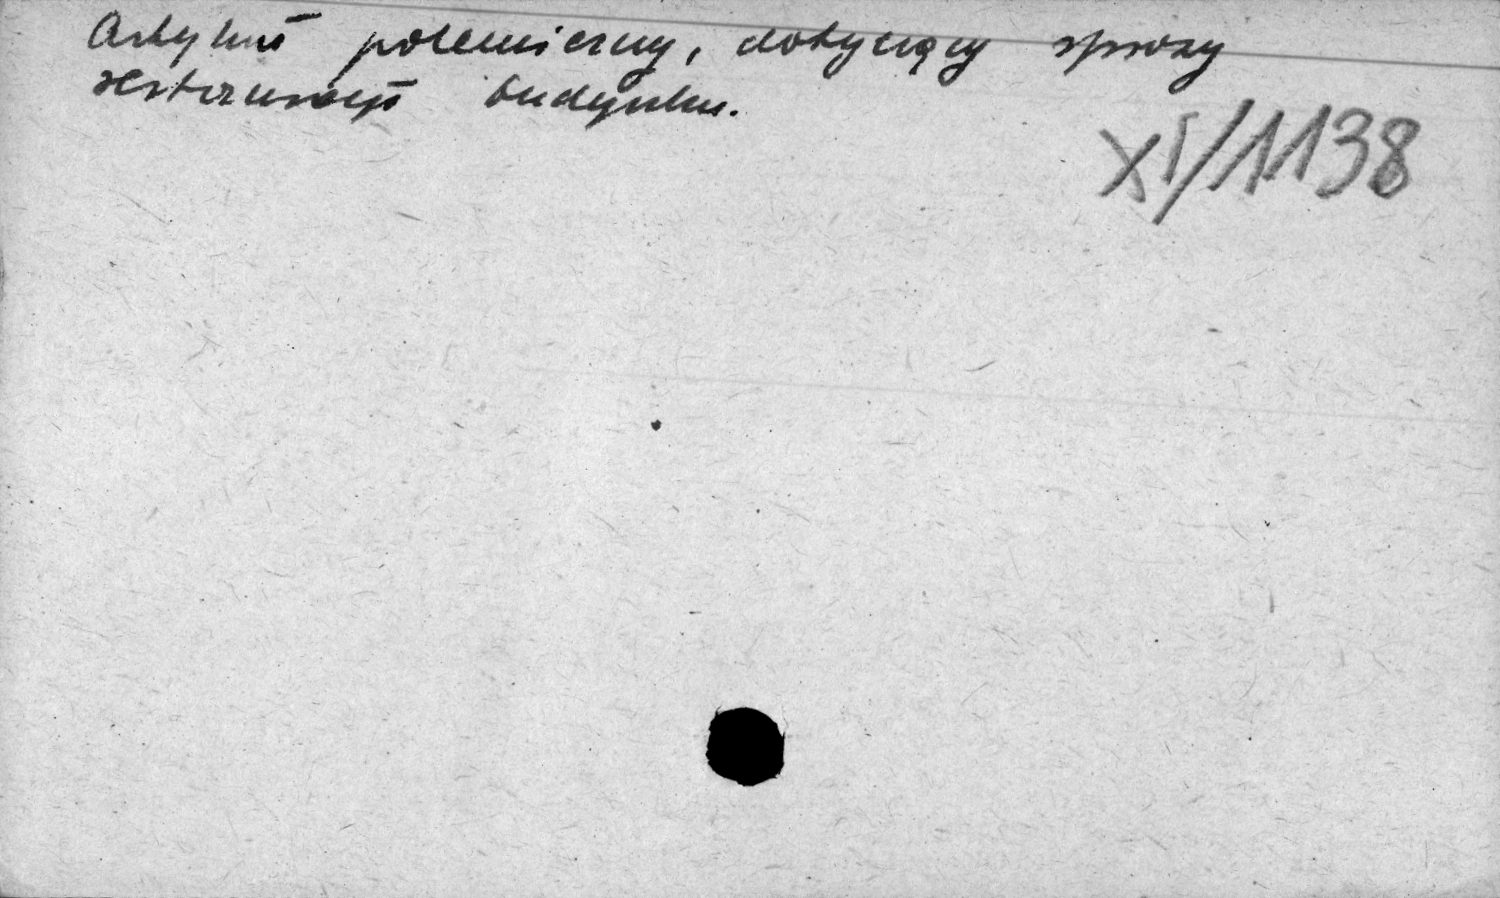 Artykuł polemiczny, dotyczący sprawy
restauracji budynku.
XI/1138